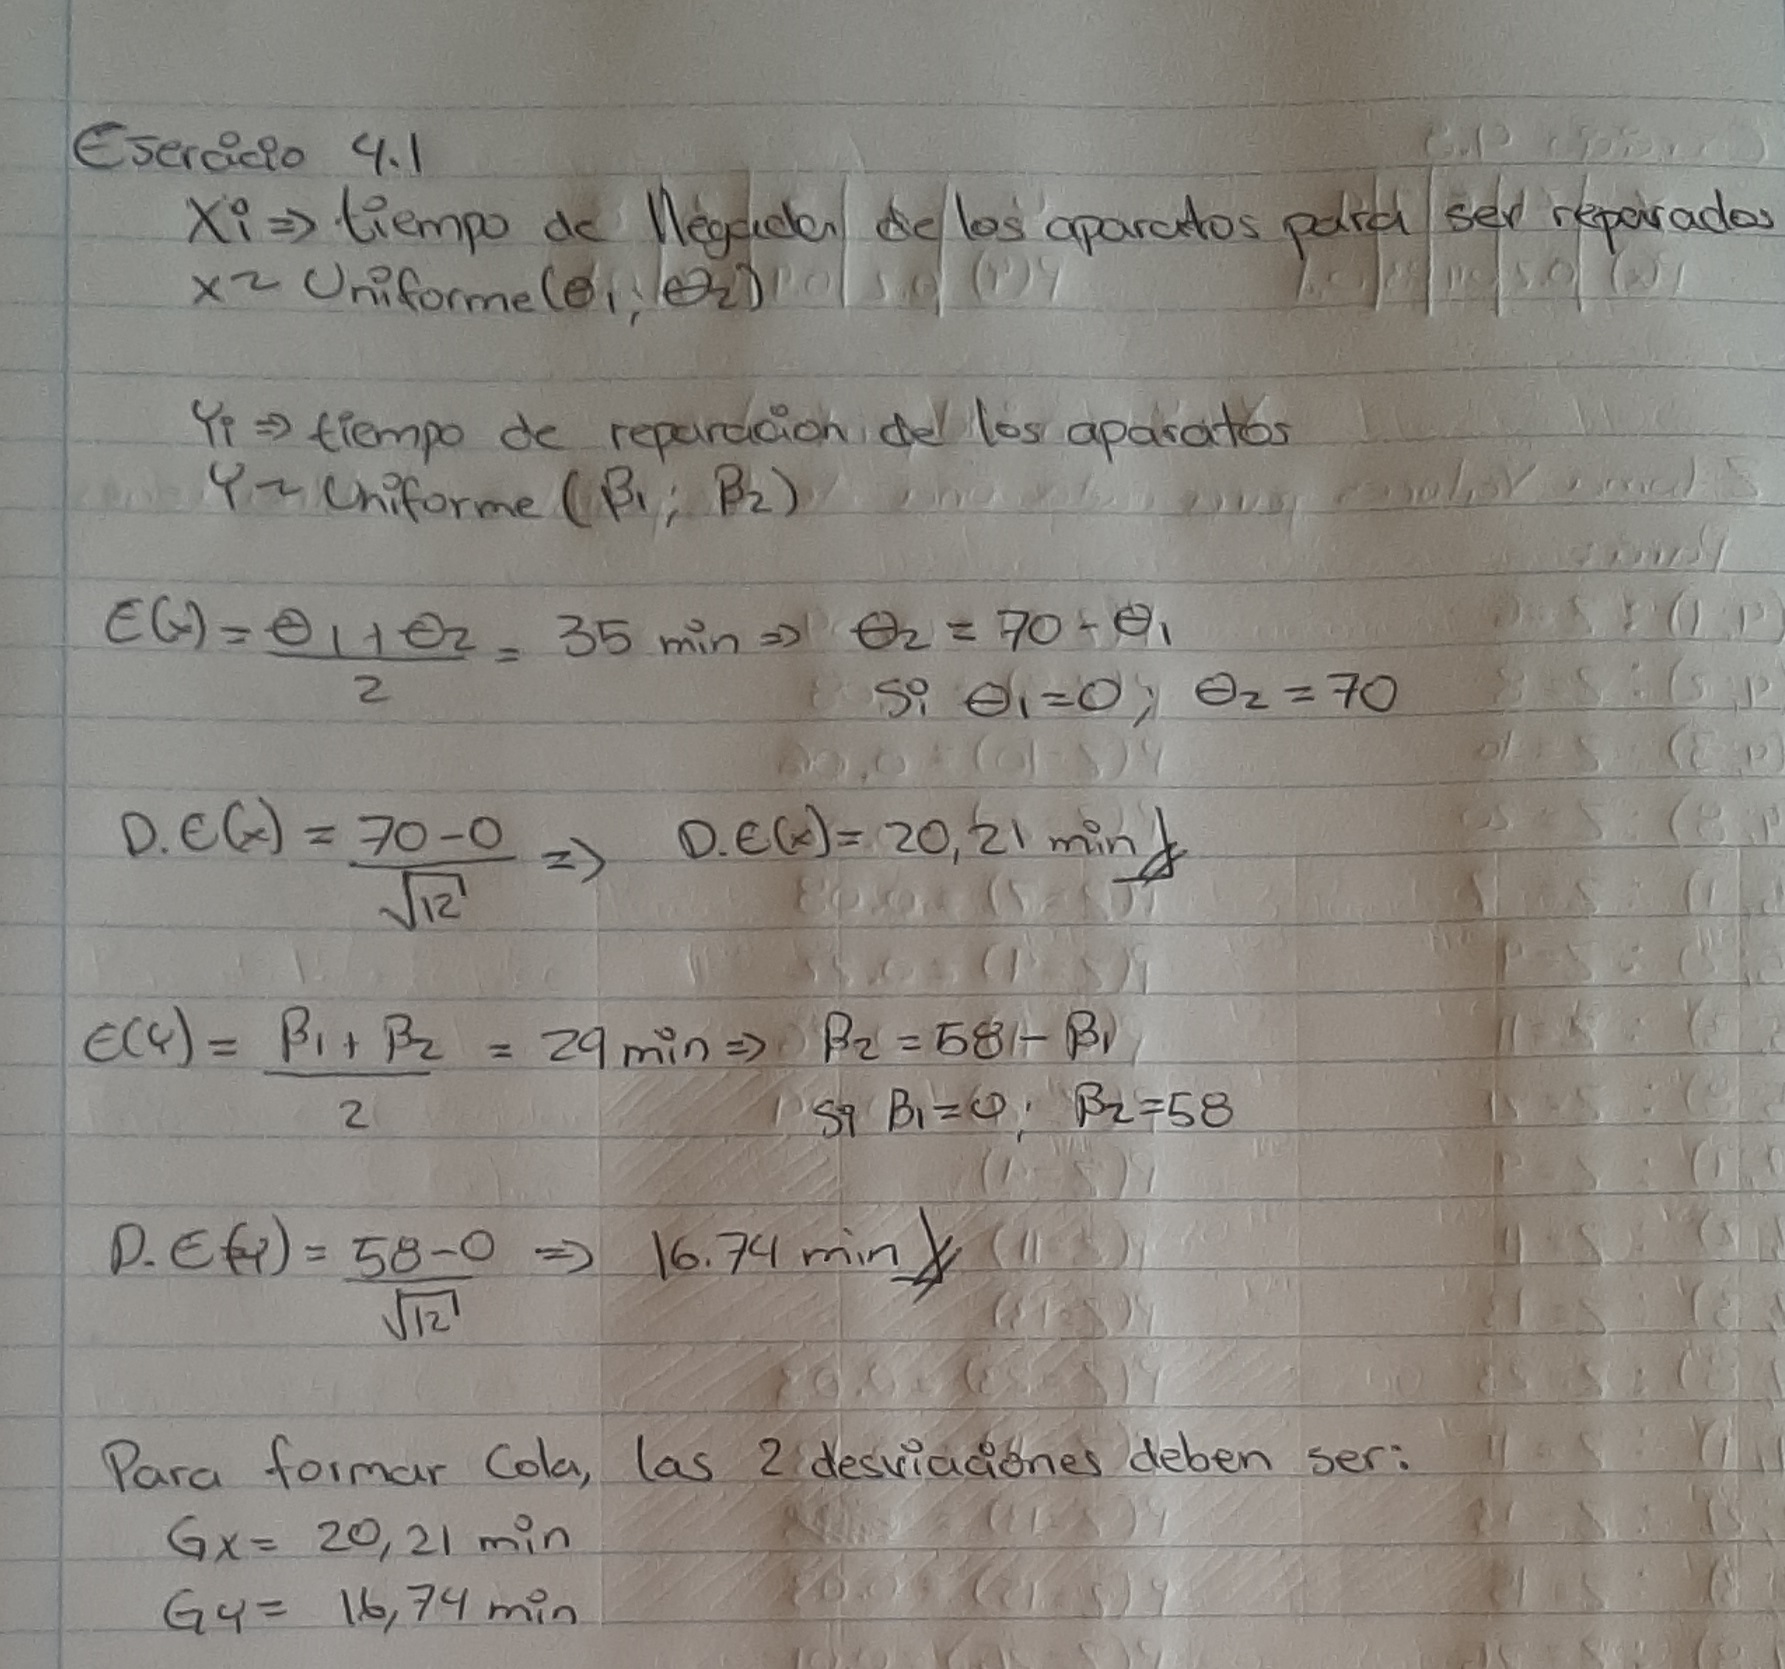 Esercicio 4.1
Xi => tiempo de llegada de los aparatos para ser reparados
x ~ Uniforme (θ1; θ2)
Yi => tiempo de reparación de los aparatos
Y ~ Uniforme (β1; β2)
E(x) = (θ1 + θ2)/2 = 35 min => θ2 = 70 - θ1
Si θ1 = 0; θ2 = 70
D.E(x) = (70 - 0)/√12 => D.E(x) = 20,21 min
E(Y) = (β1 + β2)/2 = 29 min => β2 = 58 - β1
Si β1 = 0; β2 = 58
D.E(Y) = (58 - 0)/√12 => 16.74 min
Para formar Cola, las 2 desviaciones deben ser:
Gx = 20,21 min
Gy = 16,74 min